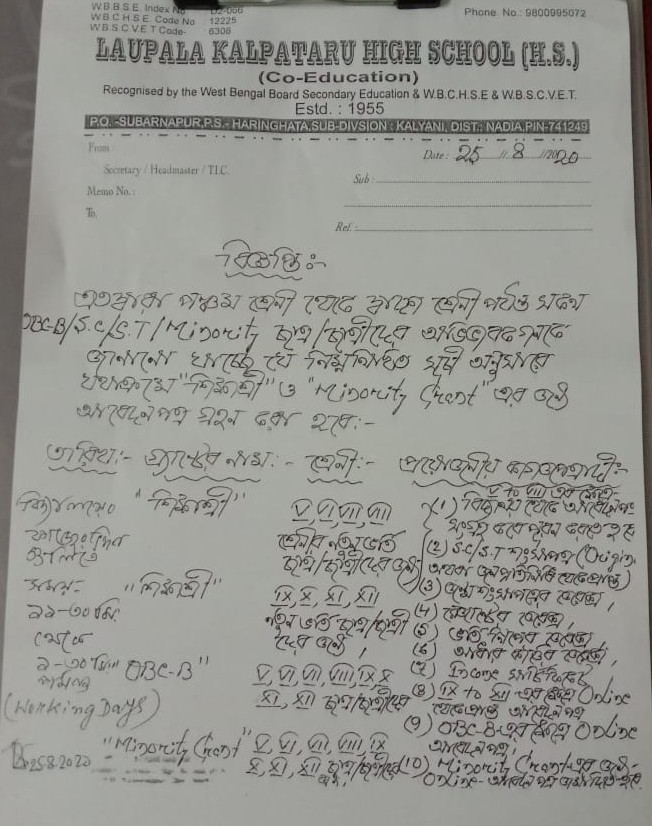 W.B.B.S.E. Index No D2-066
W.B.C.H.S.E. Code No 12225
W.B.S.C.V.E.T Code- 6306
Phone. No.: 9800995072
LAUPALA KALPATARU HIGH SCHOOL (H.S.)
(Co-Education)
Recognised by the West Bengal Board Secondary Education & W.B.C.H.S.E & W.B.S.C.V.E.T.
Estd. : 1955
P.O. -SUBARNAPUR,P.S.- HARINGHATA,SUB-DIVSION : KALYANI, DIST.: NADIA,PIN-741249
From
Date: 25/8/2020
Secretary / Headmaster / T.I.C.
Sub :
Memo No. :
To,
Ref.:
বিজ্ঞপ্তি ঃ-
এতদ্বারা পঞ্চম শ্রেনী থেকে দ্বাদশ শ্রেনী পর্যন্ত সকল
OBC-B/S.C/S.T/Minority ছাত্র/ছাত্রীদের অভিভাবকগনকে
জানানো যাচ্ছে যে নিম্নলিখিত সূচী অনুসারে
যথাক্রমে "শিক্ষাশ্রী" ও "Minority Grant" এর জন্য
আবেদন পত্র গ্রহন করা হবে:-
তারিখ:- গ্র্যান্টের নাম:- শ্রেনী:- প্রয়োজনীয় কাগজপত্রাদি:-
বিদ্যালয়ের
কাজের দিন
গুলিতে
সময়:-
১১-৩০ মি:
থেকে
১-৩০ মি:
(Working Days)
25.8.2020
"শিক্ষাশ্রী"
V, VI, VII, VIII
শ্রেনীর নতুন ভর্তি
ছাত্র/ছাত্রীদের জন্য
"শিক্ষাশ্রী"
IX, X, XI, XII
নতুন ভর্তি ছাত্র/ছাত্রী
দের জন্য,
"OBC-B"
V, VI, VII, VIII, IX, X
XI, XII ছাত্র/ছাত্রীদের
"Minority Grant"
V, VI, VII, VIII, IX
X, XI, XII ছাত্র/ছাত্রীদের
V to VIII এর ক্ষেত্রে
(1) বিদ্যালয় থেকে আবেদনপত্র
সংগ্রহ করে পূরন করতে হবে
(2) S.C/S.T শংসাপত্র (Origin
(3) জন্ম শংসাপত্রের জেরক্স,
(4) জেরক্স,
(5) ভর্তি জেরক্স,
(6) আধার কার্ডের জেরক্স,
(7) Income সার্টিফিকেট
(8) IX to XII-এর ক্ষেত্রে Online
আবেদনপত্র
(9) OBC-B-এর ক্ষেত্রে Online
আবেদনপত্র,
(10) Minority Grant-এর জন্য-
Online- আবেদন পত্র জমা দিতে হবে.